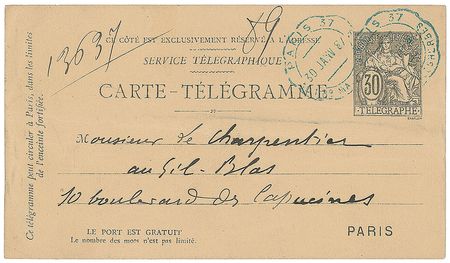 13637
89
CE CÔTÉ EST EXCLUSIVEMENT RÉSERVÉ À L'ADRESSE
SERVICE TÉLÉGRAPHIQUE
CARTE-TÉLÉGRAMME
PARIS 37
30 JANV 87
PARIS 37
30
TÉLÉGRAPHE
Ce télégramme peut circuler à Paris, dans les limites
de l'enceinte fortifiée.
Monsieur Le Charpentier
au Gil-Blas
10 boulevard des Capucines
LE PORT EST GRATUIT
Le nombre des mots n'est pas limité.
PARIS